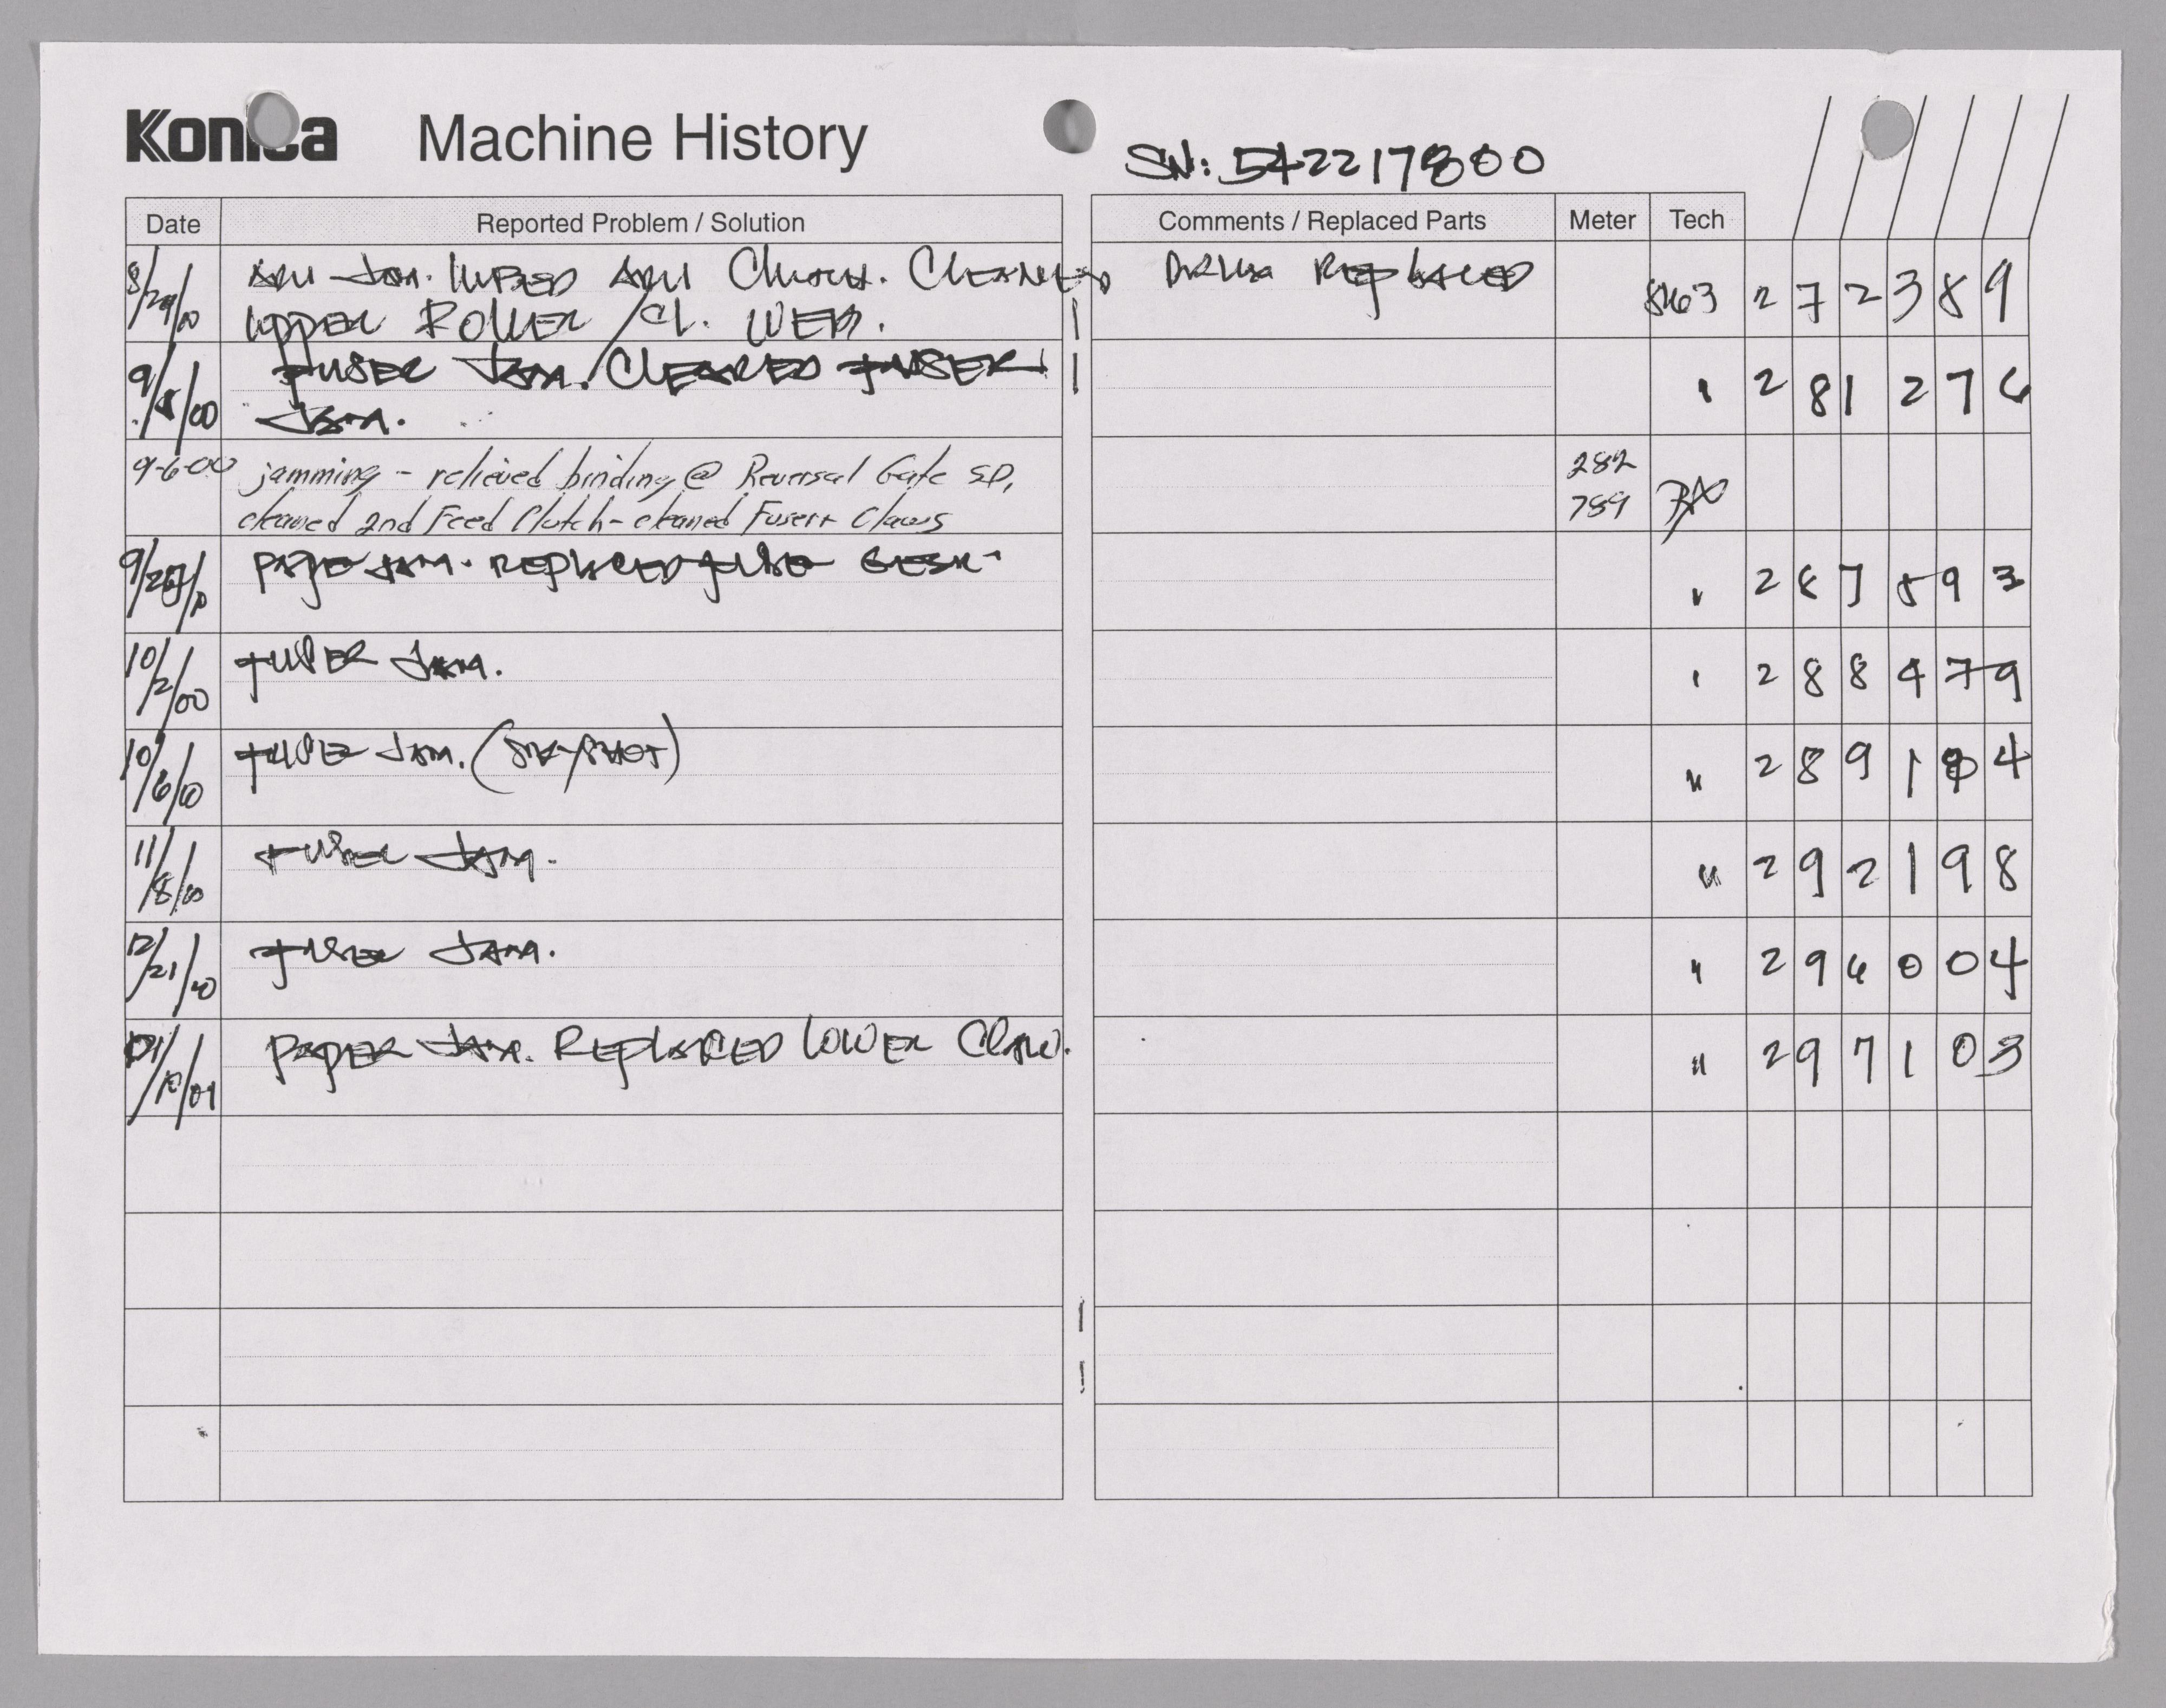 Konica Machine History
SN: 542217800
Date Reported Problem / Solution Comments / Replaced Parts Meter Tech
8/29/00 ADU JAM. WIPED ADU Clutch. CLEANED DRUM REPLACED 8463 2 7 2 3 8 9
UPPER ROLLER / Cl. WEB.
9/5/00 FUSER JAM. CLEARED FUSER 2 8 1 2 7 6
JAM.
9-6-00 jamming - relieved binding @ Reversal Gate SD, 282
cleaned 2nd Feed Clutch - cleaned Fuser + Claws 789
PAPE JAM. REPLACED FUSE 2 8 7 5 9 3
10/2/00 FUSER JAM. 2 8 8 4 7 9
10/6/00 FUSE JAM. (SNAPSHOT) 2 8 9 1 4
11/8/00 FUSER JAM. " 2 9 2 1 9 8
12/21/00 FUSER JAM. " 2 9 6 0 0 4
01/10/01 PAPER JAM. REPLACED LOWER CLAW. " 2 9 7 1 0 3